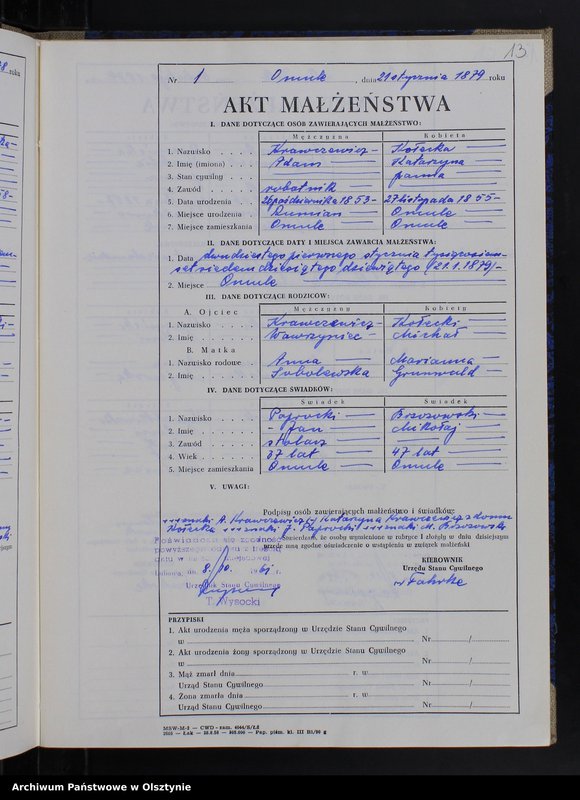 13
Nr 1 Omule, dnia 21 stycznia 1879 roku
AKT MAŁŻEŃSTWA
I. DANE DOTYCZĄCE OSÓB ZAWIERAJĄCYCH MAŁŻEŃSTWO:
Mężczyzna Kobieta
1. Nazwisko Krawczewicz Kołecka
2. Imię (imiona) Adam Katarzyna
3. Stan cywilny — panna
4. Zawód robotnik
5. Data urodzenia 26 października 1853 27 listopada 1855
6. Miejsce urodzenia Rumian Omule
7. Miejsce zamieszkania Omule Omule
II. DANE DOTYCZĄCE DATY I MIEJSCA ZAWARCIA MAŁŻEŃSTWA:
1. Data dwudziestego pierwszego stycznia tysiąc osiem-
set siedemdziesiątego dziewiątego (21.1.1879)
2. Miejsce Omule
III. DANE DOTYCZĄCE RODZICÓW:
Mężczyzny Kobiety
A. Ojciec
1. Nazwisko Krawczewicz Kołecki
2. Imię Wawrzyniec Michał
B. Matka
1. Nazwisko rodowe Anna Marianna
2. Imię Sobolewska Grunwald
IV. DANE DOTYCZĄCE ŚWIADKÓW:
Świadek Świadek
1. Nazwisko Paprocki Brzozowski
2. Imię Jan Mikołaj
3. Zawód stolarz
4. Wiek 37 lat 47 lat
5. Miejsce zamieszkania Omule Omule
V. UWAGI:
Podpisy osób zawierających małżeństwo i świadków:
+++ znaki A. Krawczewicz Katarzyna Krawczewicz z domu
Kołecka +++ znaki J. Paprocki +++ znaki M. Brzozowski
Stwierdzam, że osoby wymienione w rubryce I złożyły w dniu dzisiejszym
przede mną zgodne oświadczenie o wstąpieniu w związek małżeński
Poświadcza się zgodność
powyższego odpisu z treścią
dnia 8. 10. 61 r.
Urzędnik Stanu Cywilnego
T. Wysocki
KIEROWNIK
Urzędu Stanu Cywilnego
PRZYPISKI
1. Akt urodzenia męża sporządzony w Urzędzie Stanu Cywilnego
w Nr /
2. Akt urodzenia żony sporządzony w Urzędzie Stanu Cywilnego
w Nr /
3. Mąż zmarł dnia r. w
Urząd Stanu Cywilnego Nr /
4. Żona zmarła dnia r. w
Urząd Stanu Cywilnego Nr /
Archiwum Państwowe w Olsztynie